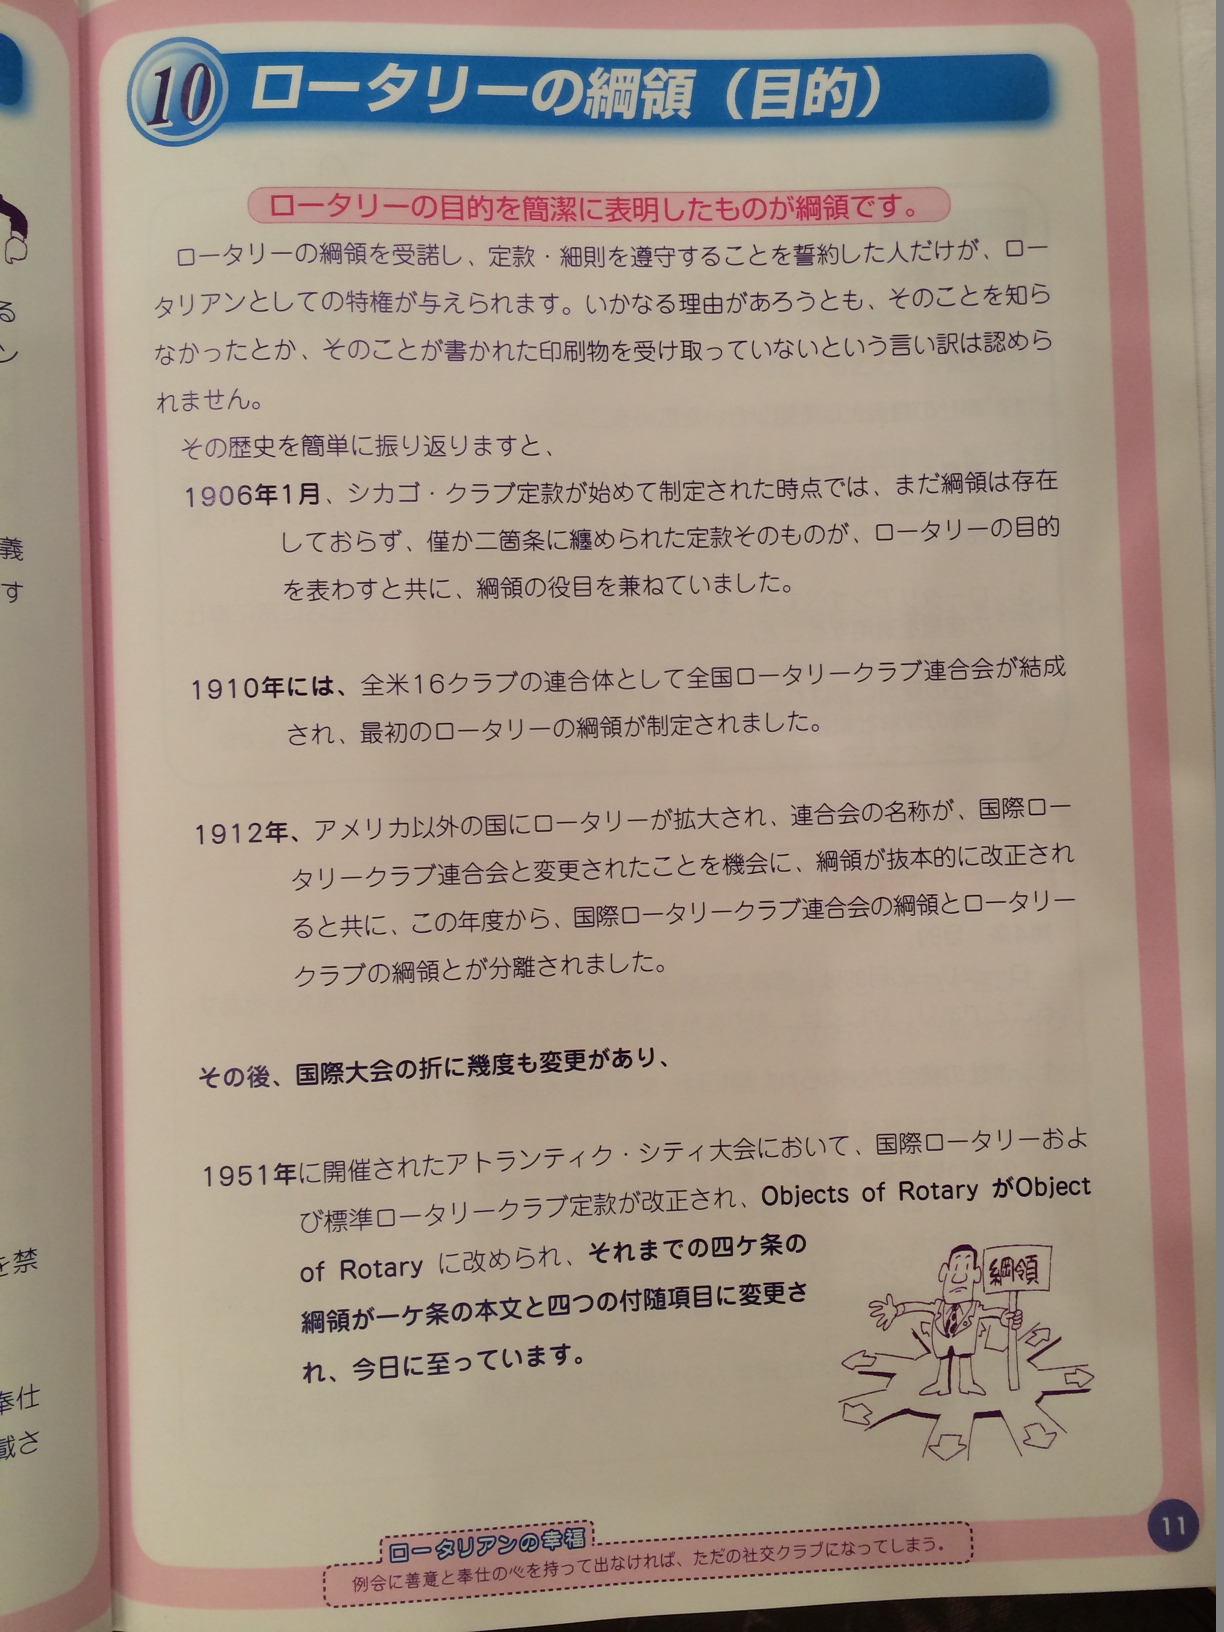 10 ロータリーの綱領（目的）
ロータリーの目的を簡潔に表明したものが綱領です。
ロータリーの綱領を受諾し、定款・細則を遵守することを誓約した人だけが、ロー
タリアンとしての特権が与えられます。いかなる理由があろうとも、そのことを知ら
なかったとか、そのことが書かれた印刷物を受け取っていないという言い訳は認めら
れません。
その歴史を簡単に振り返りますと、
1906年1月、シカゴ・クラブ定款が始めて制定された時点では、まだ綱領は存在
しておらず、僅か二箇条に纏められた定款そのものが、ロータリーの目的
を表わすと共に、綱領の役目を兼ねていました。
1910年には、全米16クラブの連合体として全国ロータリークラブ連合会が結成
され、最初のロータリーの綱領が制定されました。
1912年、アメリカ以外の国にロータリーが拡大され、連合会の名称が、国際ロー
タリークラブ連合会と変更されたことを機会に、綱領が抜本的に改正され
ると共に、この年度から、国際ロータリークラブ連合会の綱領とロータリー
クラブの綱領とが分離されました。
その後、国際大会の折に幾度も変更があり、
1951年に開催されたアトランティク・シティ大会において、国際ロータリーおよ
び標準ロータリークラブ定款が改正され、Objects of Rotary がObject
of Rotary に改められ、それまでの四ケ条の
綱領が一ケ条の本文と四つの付随項目に変更さ
れ、今日に至っています。
綱領
ロータリアンの幸福
例会に善意と奉仕の心を持って出なければ、ただの社交クラブになってしまう。
11
る
ン
義
す
を禁
奉仕
載さ